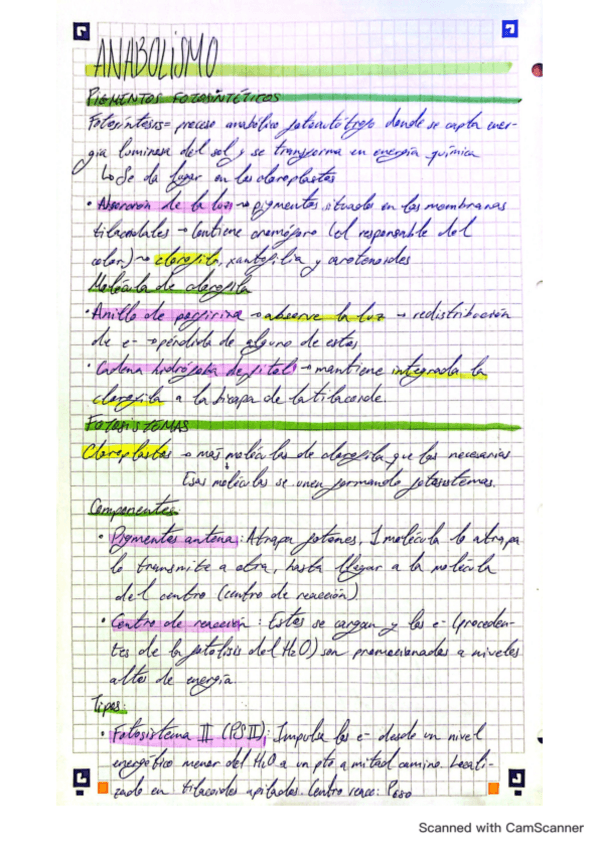 ANABOLISMO
PIGMENTOS FOTOSINTÉTICOS
Fotosíntesis = proceso anabólico fotoautótrofo donde se capta ener-
gía luminosa del sol y se transforma en energía química
↳ Se da lugar en los cloroplastos
• Absorción de la luz → pigmentos situados en las membranas
tilacoidales → Contiene cromóforo (el responsable del
color) → clorofila, xantofilia y carotenoides
Molécula de clorofila
• Anillo de porfirina → absorve la luz → redistribución
de e- → pérdida de alguno de estos
• Cadena hidrófoba de fitol → mantiene integrada la
clorofila a la bicapa de la tilacoide.
FOTOSISTEMAS
Cloroplastos → más moléculas de clorofila que las necesarias
Esas moléculas se unen formando fotosistemas.
Componentes:
• Pigmentos antena: Atrapa fotones, 1 molécula lo atrapa
lo transmite a otra, hasta llegar a la molécula
del centro (centro de reacción).
• Centro de reacción: Estos se cargan y los e- (proceden-
tes de la fotólisis del H2O) son promocionados a niveles
altos de energía.
Tipos:
• Fotosistema II (PSII): Impulsa los e- desde un nivel
energético menor del H2O a un pto a mitad camino. Locali-
zado en tilacoides apilados. Centro reacc: P680
Scanned with CamScanner